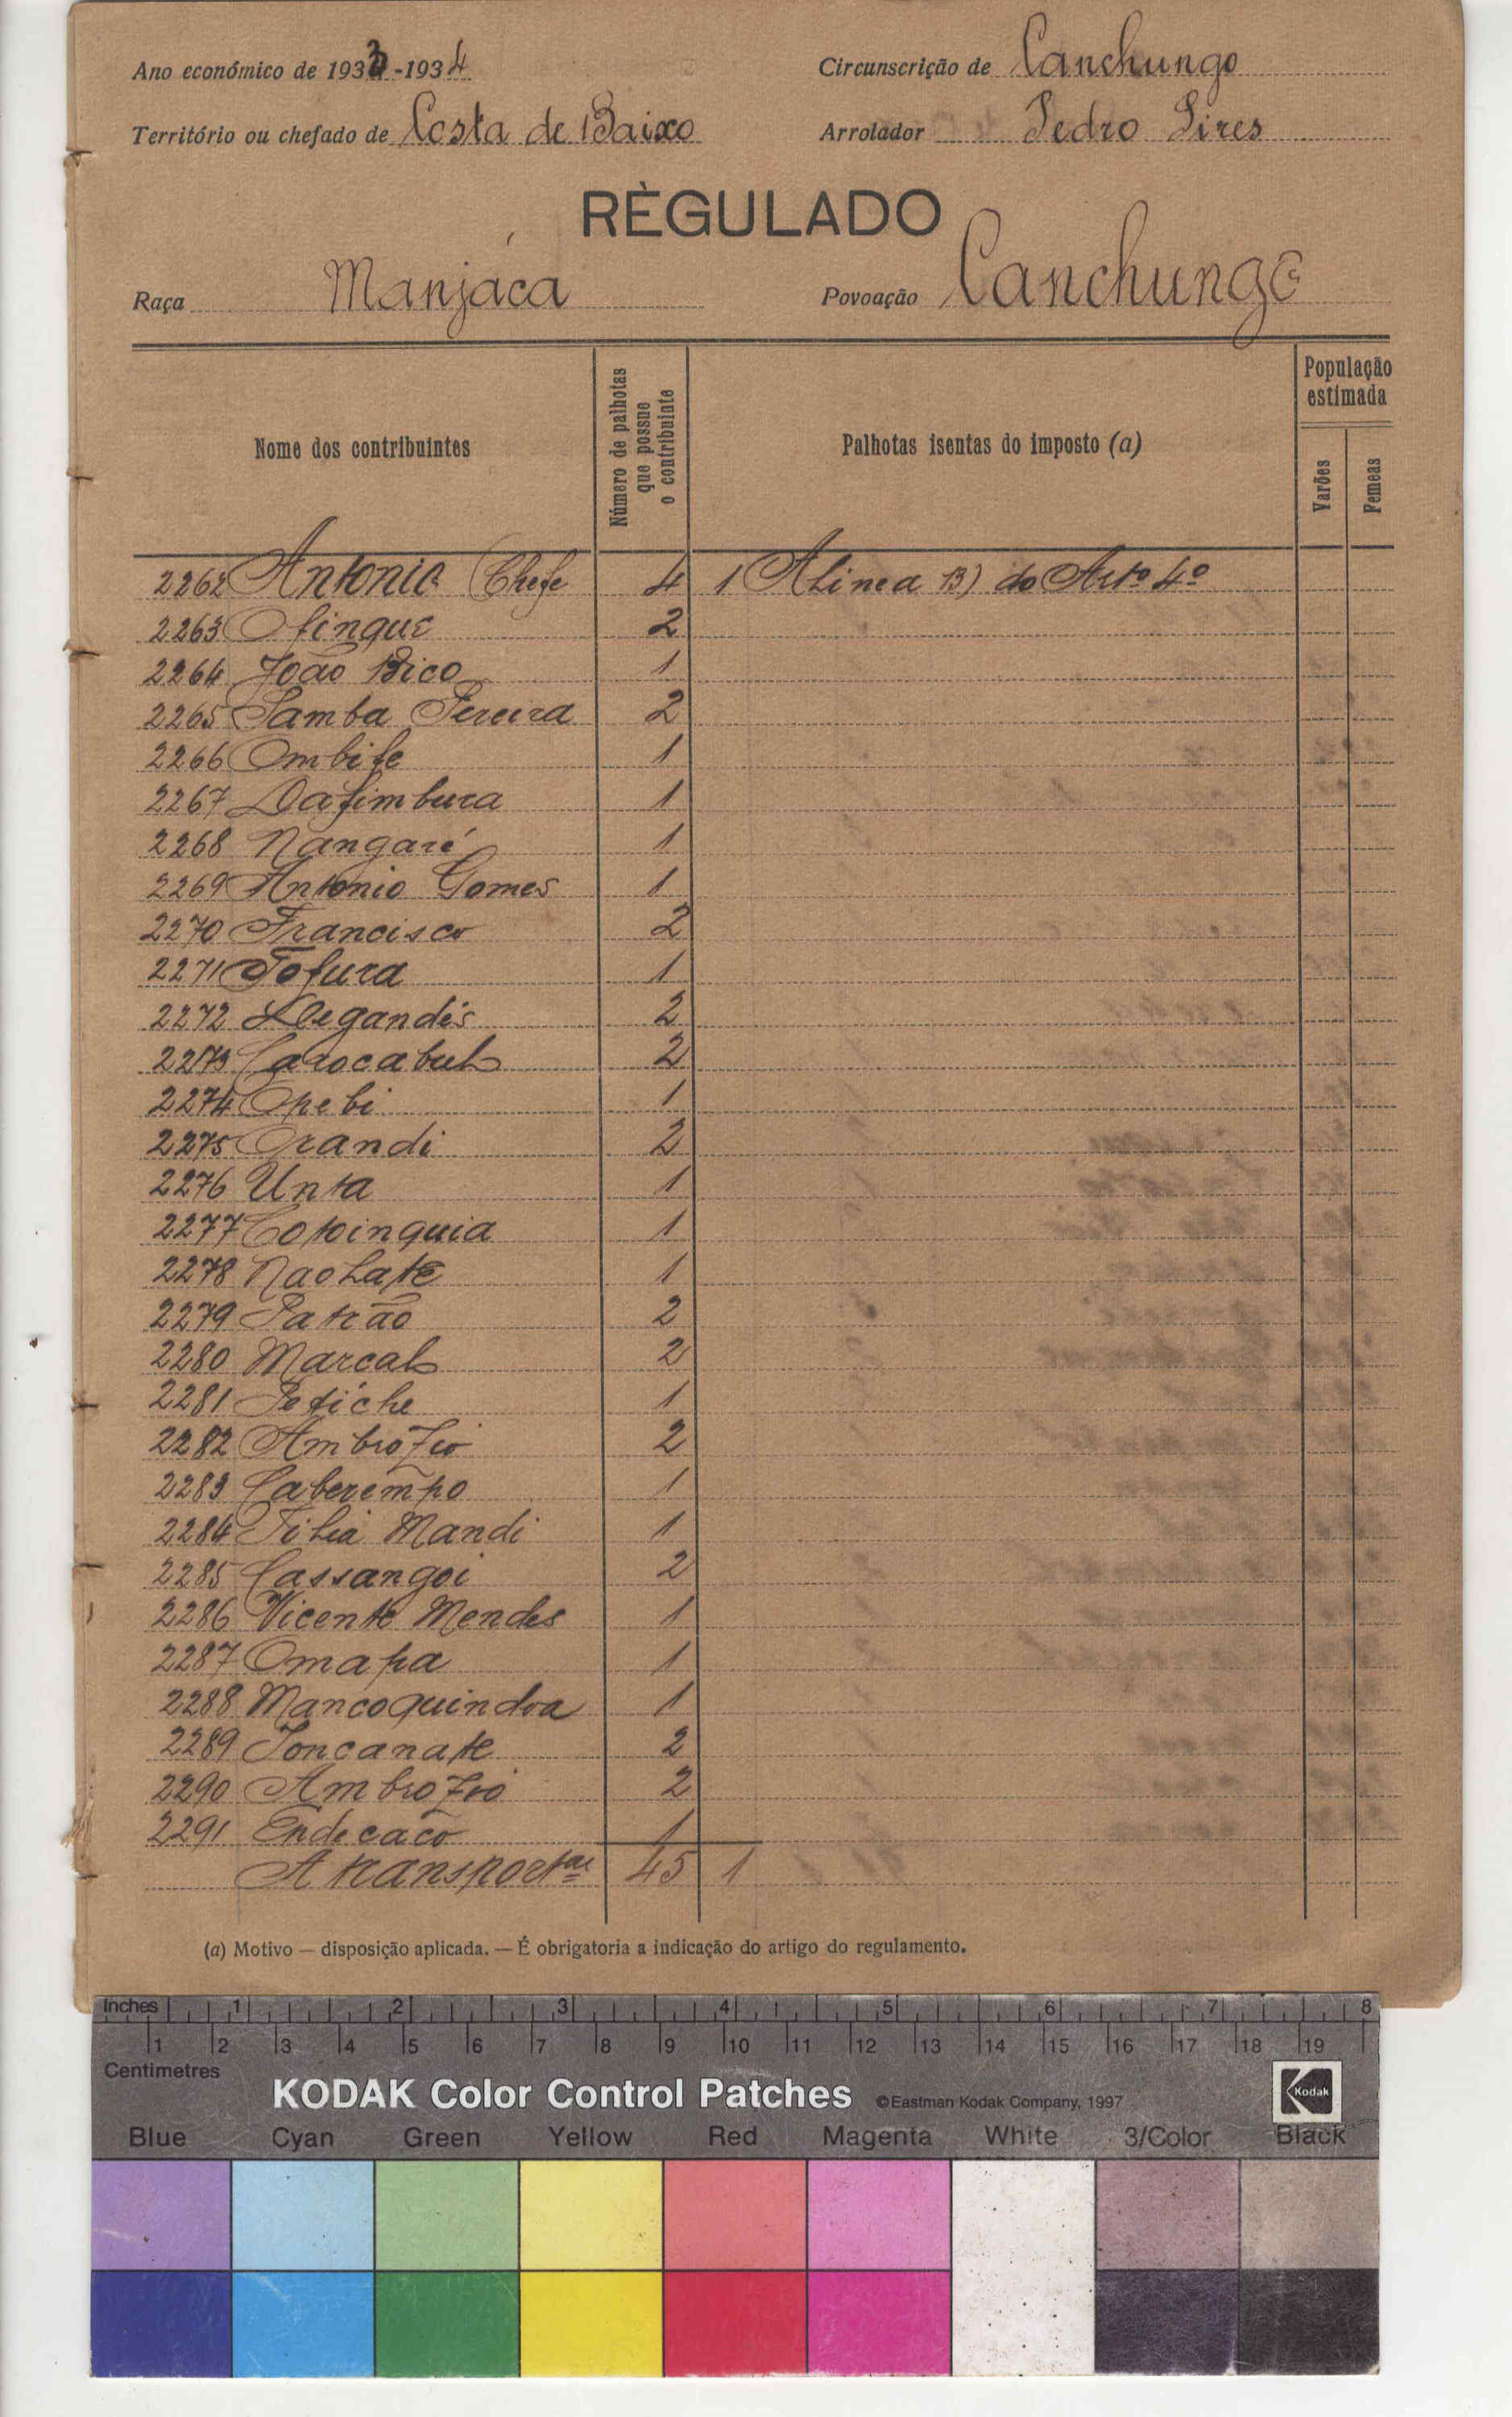 Ano económico de 1933-1934 Circunscrição de Canchungo
Território ou chefado de Costa de Baixo Arrolador Pedro Pires
RÈGULADO
Raça Manjáca Povoação Canchungo
Nome dos contribuintes
Número de palhotas que possue o contribuinte
Palhotas isentas do imposto (a)
População estimada
Varões
Femeas
2262 Antonio Chefe 4 1 Alinea B) do Artº 4º
2263 Ofinque 2
2264 João Bico 1
2265 Samba Pereira 2
2266 Ombife 1
2267 Dafimbura 1
2268 Nangaré 1
2269 Antonio Gomes 1
2270 Francisco 2
2271 Tofura 1
2272 Degandés 2
2273 Carocabul 2
2274 Opebi 1
2275 Orandi 2
2276 Unta 1
2277 Cotoinquia 1
2278 Naolate 1
2279 Patrão 2
2280 Marcal 2
2281 Petiche 1
2282 Ambrozio 2
2283 Caberempo 1
2284 Tilia Mandi 1
2285 Cassangoi 2
2286 Vicente Mendes 1
2287 Omapa 1
2288 Mancoquindoa 1
2289 Joncanate 2
2290 Ambrozio 2
2291 Endecaco 1
A transportar 45 1
(a) Motivo — disposição aplicada. — É obrigatoria a indicação do artigo do regulamento.
Inches 1 2 3 4 5 6 7 8
1 2 3 4 5 6 7 8 9 10 11 12 13 14 15 16 17 18 19
Centimetres
KODAK Color Control Patches ©Eastman Kodak Company, 1997 Kodak
Blue Cyan Green Yellow Red Magenta White 3/Color Black